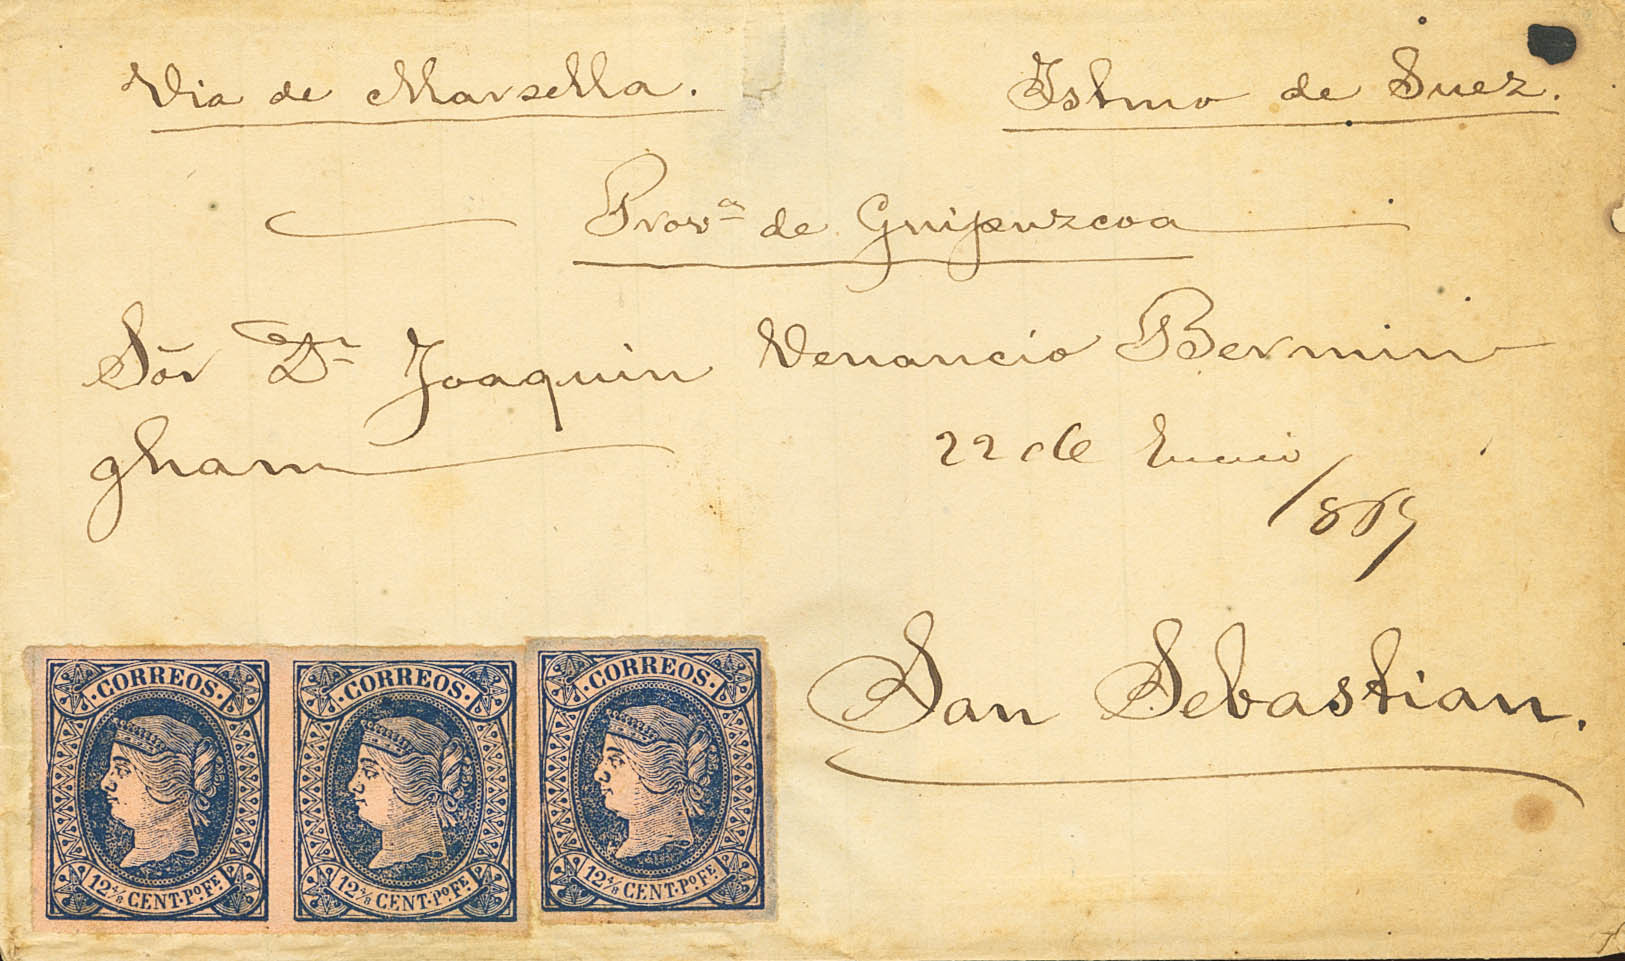 Via de Marsella. Istmo de Suez.
Prov.ª de Guipuzcoa
Sõr Dⁿ Joaquin Venancio Bermin
gham
22 de Enero
1869
San Sebastian.
CORREOS. CORREOS. CORREOS.
12 4/8 CENT.Pº.Fᴱ. 12 4/8 CENT.Pº.Fᴱ. 12 4/8 CENT.Pº.Fᴱ.